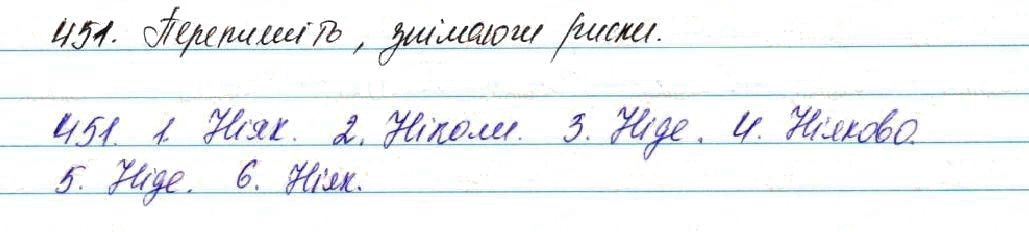 451. Перепишіть, знімаючи риски.
451. 1. Ніяк. 2. Ніколи. 3. Ніде. 4. Ніяково.
5. Ніде. 6. Ніяк.